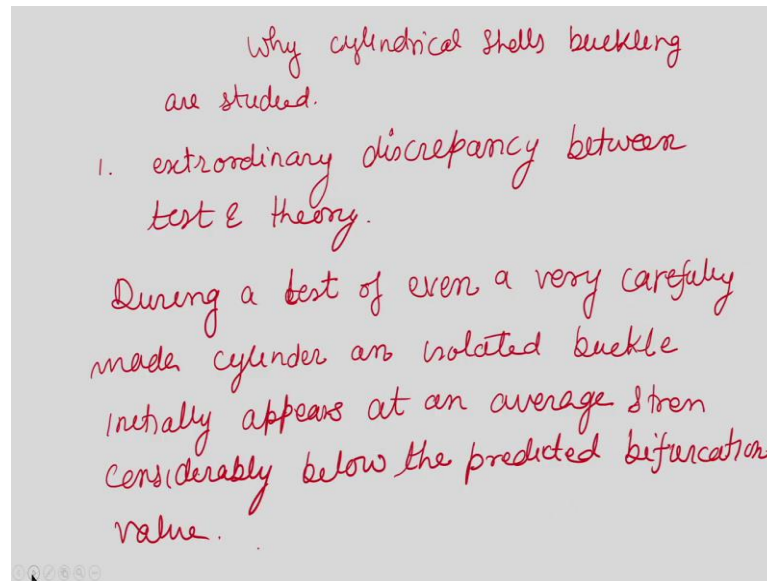 Why cylindrical shells buckling
are studed.
1. extrordinary discrepancy between
test & theory.
During a test of even a very carefuly
made cylinder an isolated buckle
initially appears at an average stress
considerably below the predicted bifurcation
value.